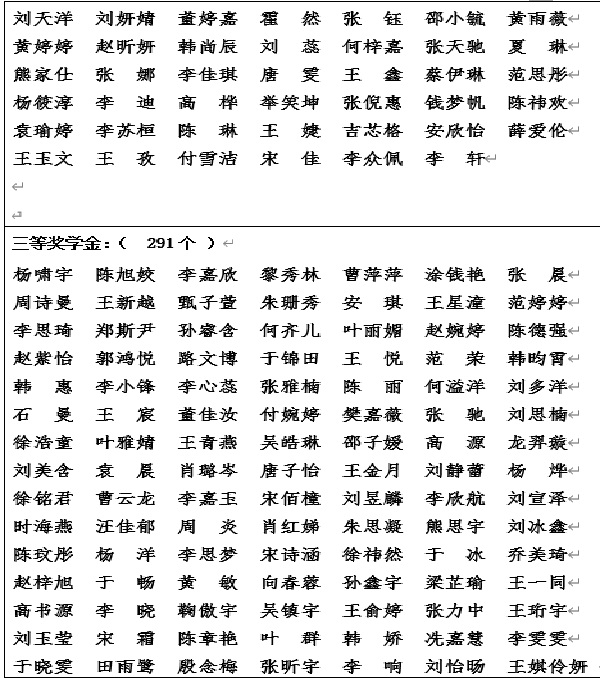 刘天洋 刘妍婧 董婷嘉 霍 然 张 钰 邵小毓 黄雨薇
黄婷婷 赵昕妍 韩尚辰 刘 蕊 何梓嘉 张天驰 夏 琳
熊家仕 张 娜 李佳琪 唐 雯 王 鑫 蔡伊琳 范思彤
杨筱淳 李 迪 高 桦 举笑坤 张倪惠 钱梦帆 陈祎欢
袁瑜婷 李苏桓 陈 琳 王 婕 吉芯格 安欣怡 薛爱伦
王玉文 王 孜 付雪洁 宋 佳 李众佩 李 轩
三等奖学金：（ 291个 ）
杨啸宇 陈旭姣 李嘉欣 黎秀林 曹萍萍 涂钱艳 张 晨
周诗曼 王新越 甄子萱 朱珊秀 安 琪 王星潼 范婷婷
李思琦 郑斯尹 孙睿含 何齐儿 叶丽媚 赵婉婷 陈德强
赵紫怡 郭鸿悦 路文博 于锦田 王 悦 范 荣 韩昀霄
韩 惠 李小锋 李心蕊 张雅楠 陈 丽 何溢洋 刘多洋
石 曼 王 宸 董佳汝 付婉婷 樊嘉薇 张 驰 刘思楠
徐浩童 叶雅婧 王青燕 吴皓琳 邵子媛 高 源 龙羿璇
刘美含 袁 晨 肖璐岑 唐子怡 王金月 刘静蕾 杨 烨
徐铭君 曹云龙 李嘉玉 宋佰橦 刘昱麟 李欣航 刘宣泽
时海燕 汪佳郁 周 炎 肖红娣 朱思凝 熊思宇 刘冰鑫
陈玟彤 杨 洋 李思梦 宋诗涵 徐祎然 于 冰 乔美琦
赵梓旭 于 畅 黄 敏 向春蓉 孙鑫宇 梁芷瑜 王一同
高书源 李 晓 鞠傲宇 吴镇宇 王俞婷 张力中 王珩宇
刘玉莹 宋 霜 陈章艳 叶 群 韩 娇 冼嘉慧 李雯雯
于晓雯 田雨鹭 殷念梅 张昕宇 李 响 刘怡旸 王娸伶妍